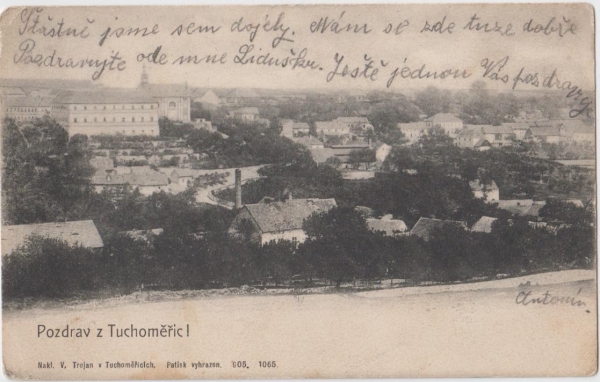 Šťastně jsme sem dojely. Nám se zde tuze dobře
Pozdravujte ode mne Lidušku. Ještě jednou Vás pozdravuje
Antonín.
Pozdrav z Tuchoměřic!
Nakl. V. Trojan v Tuchoměřicích. Patisk vyhrazen. 905. 1065.